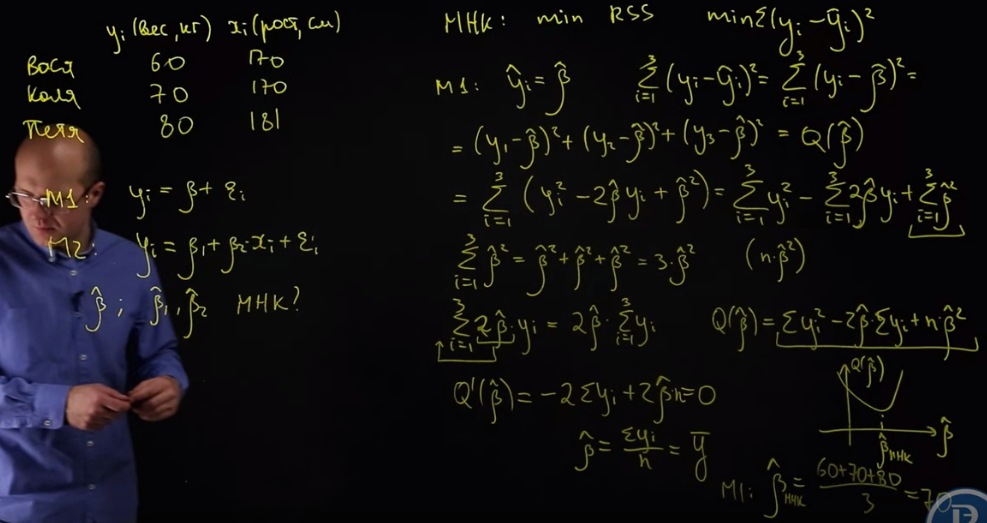 yᵢ (вес, кг) xᵢ (рост, см)
Вася 60 170
Коля 70 170
Петя 80 181
М1: yᵢ = β + εᵢ
М2: yᵢ = β₁ + β₂xᵢ + εᵢ
β̂ ; β̂₁, β̂₂ МНК?
МНК: min RSS min Σ(yᵢ − ŷᵢ)²
М1: ŷᵢ = β̂ Σᵢ₌₁³ (yᵢ − ŷᵢ)² = Σᵢ₌₁³ (yᵢ − β̂)² =
= (y₁ − β̂)² + (y₂ − β̂)² + (y₃ − β̂)² = Q(β̂)
= Σᵢ₌₁³ (yᵢ² − 2β̂yᵢ + β̂²) = Σᵢ₌₁³ yᵢ² − Σᵢ₌₁³ 2β̂yᵢ + Σᵢ₌₁³ β̂²
Σᵢ₌₁³ β̂² = β̂² + β̂² + β̂² = 3·β̂² (n·β̂²)
Σᵢ₌₁³ 2β̂·yᵢ = 2β̂·Σᵢ₌₁³ yᵢ Q(β̂) = Σyᵢ² − 2β̂·Σyᵢ + n·β̂²
Q'(β̂) = −2Σyᵢ + 2β̂n = 0
Q(β̂)
β̂
β̂мнк
β̂ = Σyᵢ / n = ȳ
М1: β̂мнк = (60+70+80) / 3 = 70